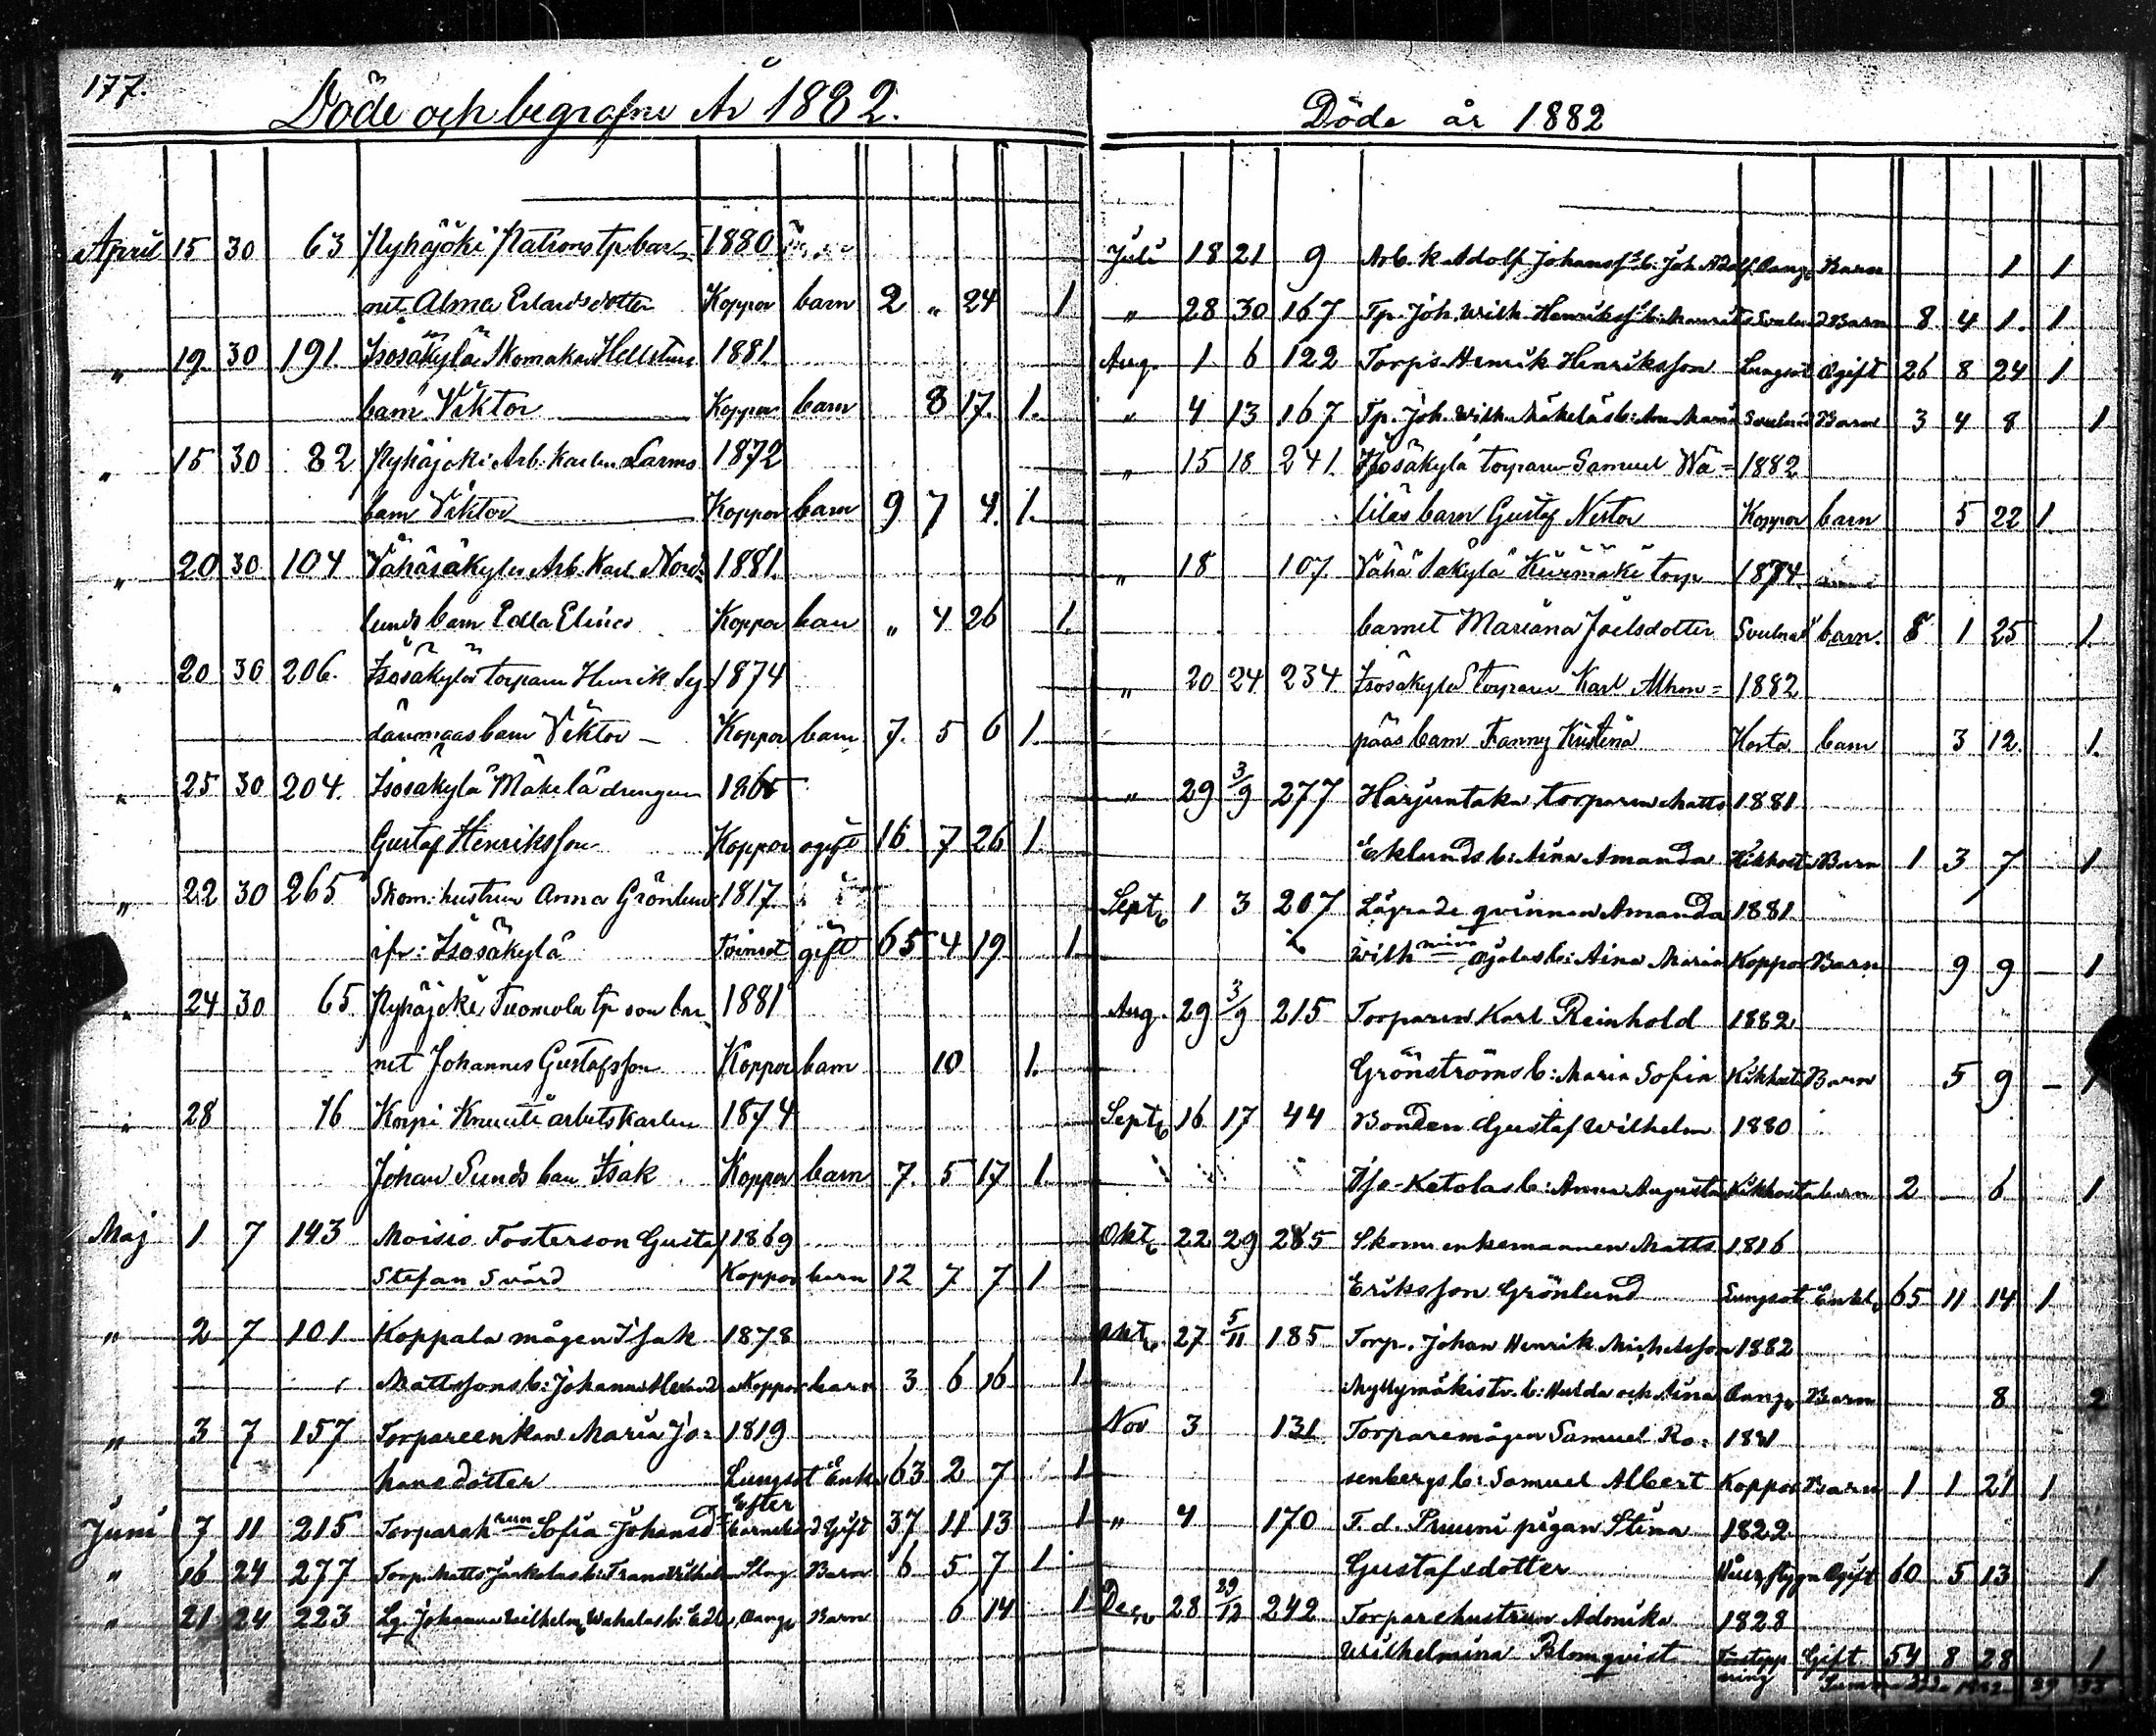 177.
Döde och begrafne År 1882.
April 15 30 63 Pyhäjoki Natrons tp bar- 1880
net Alma Erlandsdotter Koppor barn 2 " 24 1
" 19. 30 191. Isosäkylä Skomakar Hellstens 1881
barn Viktor Koppor barn 8 17. 1.
" 15 30 82 Pyhäjoki Arb. karlen Larms 1872
barn Viktor Koppor barn 9 7 4. 1.
" 20 30 104 Vähäsäkylä Arb. Karl Nord- 1881.
lunds barn Edla Elina Koppor barn " 4 26 1.
" 20 30 206. Isosäkylä torparen Henrik Sy- 1874
dänmaas barn Viktor Koppor barn 7. 5 6 1.
" 25 30 204. Isosäkylä Mäkelä drengen 1865
Gustaf Henriksson Koppor ogift 16 7 26 1.
" 22 30 265 Skom. hustrun Anna Grönlund 1817
ifr: Isosäkylä gift 65 4 19 1.
" 24 30 65 Pyhäjoki Tuomola tp son bar- 1881
net Johannes Gustafsson Koppor barn 10 1.
" 28 16 Korpi Knuuti arbetskarlen 1874
Johan Sunds barn Isak Koppor barn 7. 5 17 1.
Maj 1 7 143 Moisio Fosterson Gustaf 1869
Stefan Svärd Koppor barn 12 7 7 1
" 2 7 101 Koppala mågen Isak 1878
Mattssons b: Johanna Alexand. Koppor barn 3 6 16 1
" 3 7 157 Torpareenkan Maria Jo- 1819
hansdotter Lungsot Enka 63 2 7 1
Juni 7 11 215 Torpareh run Sofia Johansd. Efter barnsbörd Gift 37 11 13 1
" 16 24 277 Torp. Matts Jaakolas b: Frans Vilhelm Slag Barn 6 5 7 1
" 21 24 223 Johanna Wilhelm. Wahalas b: Edl. Barn 6 14 1
Döde år 1882
Juli 18 21 9 Arb. k. Adolf Johanss. b: Joh. Adolf Barn 1 1
" 28 30 167 Tp. Joh. Wilh. Henrikss. b: Mauritz Svulnad Barn 8 4 1. 1
Aug. 1 6 122 Torps. Henrik Henriksson Lungsot Ogift 26 8 24 1
" 4 13 167 Tp. Joh. Wilh. Mäkeläs b: Maria Svulnad Barn 3 4 8 1
" 15 18 241. Isosäkylä torparen Samuel Wä- 1882
liläs barn Gustaf Nestor Koppor barn 5 22 1
" 18 107. Vähä Säkylä Kiirmäki torp 1874.
barnet Mariana Joelsdotter Svulnad barn. 8 1 25 1.
" 20 24 234 Isosäkylä Torparen Karl Alhon- 1882
pääs barn Fanny Kristina Hosta barn 3 12. 1.
" 29 3/9 277 Harjuntaka torparen Matts 1881
Eklunds b: Aina Amanda Kikhosta Barn 1 3 7 1
Sept. 1 3 207 Lägrade qvinnan Amanda 1881
Wilh mina Ojalas b: Aina Maria Koppor Barn 9 9 – 1
Aug. 29 3/9 215 Torparen Karl Reinhold 1882
Grönströms b: Maria Sofia Kikhosta Barn 5 9 – 1
Sept. 16 17 44 Bonden Gustaf Wilhelm 1880
Iso-Ketolas b: Anna Augusta Kikhosta barn 2 – 6 1
Okt. 22 29 265 Skom enkemannen Matts 1816
Eriksson Grönlund Lungsot Enkl. 65 11 14 1
Okt. 27 5/11 185 Torp. Johan Henrik Michelsson 1882
Myllymäkis tv. b: Hulda och Aina Barn 8 2
Nov 3 131 Torparemågen Samuel Ro- 1881
senbergs b: Samuel Albert Koppor Barn 1 1 21 1
" 4 170 F. d. Pruuni pigan Stina 1822
Gustafsdotter Ogift 60 5 13 1
Dec. 28 29/12 242 Torparehustrun Adonika 1828
Wilhelmina Blomqvist Förstoppning Gift 54 8 28 1